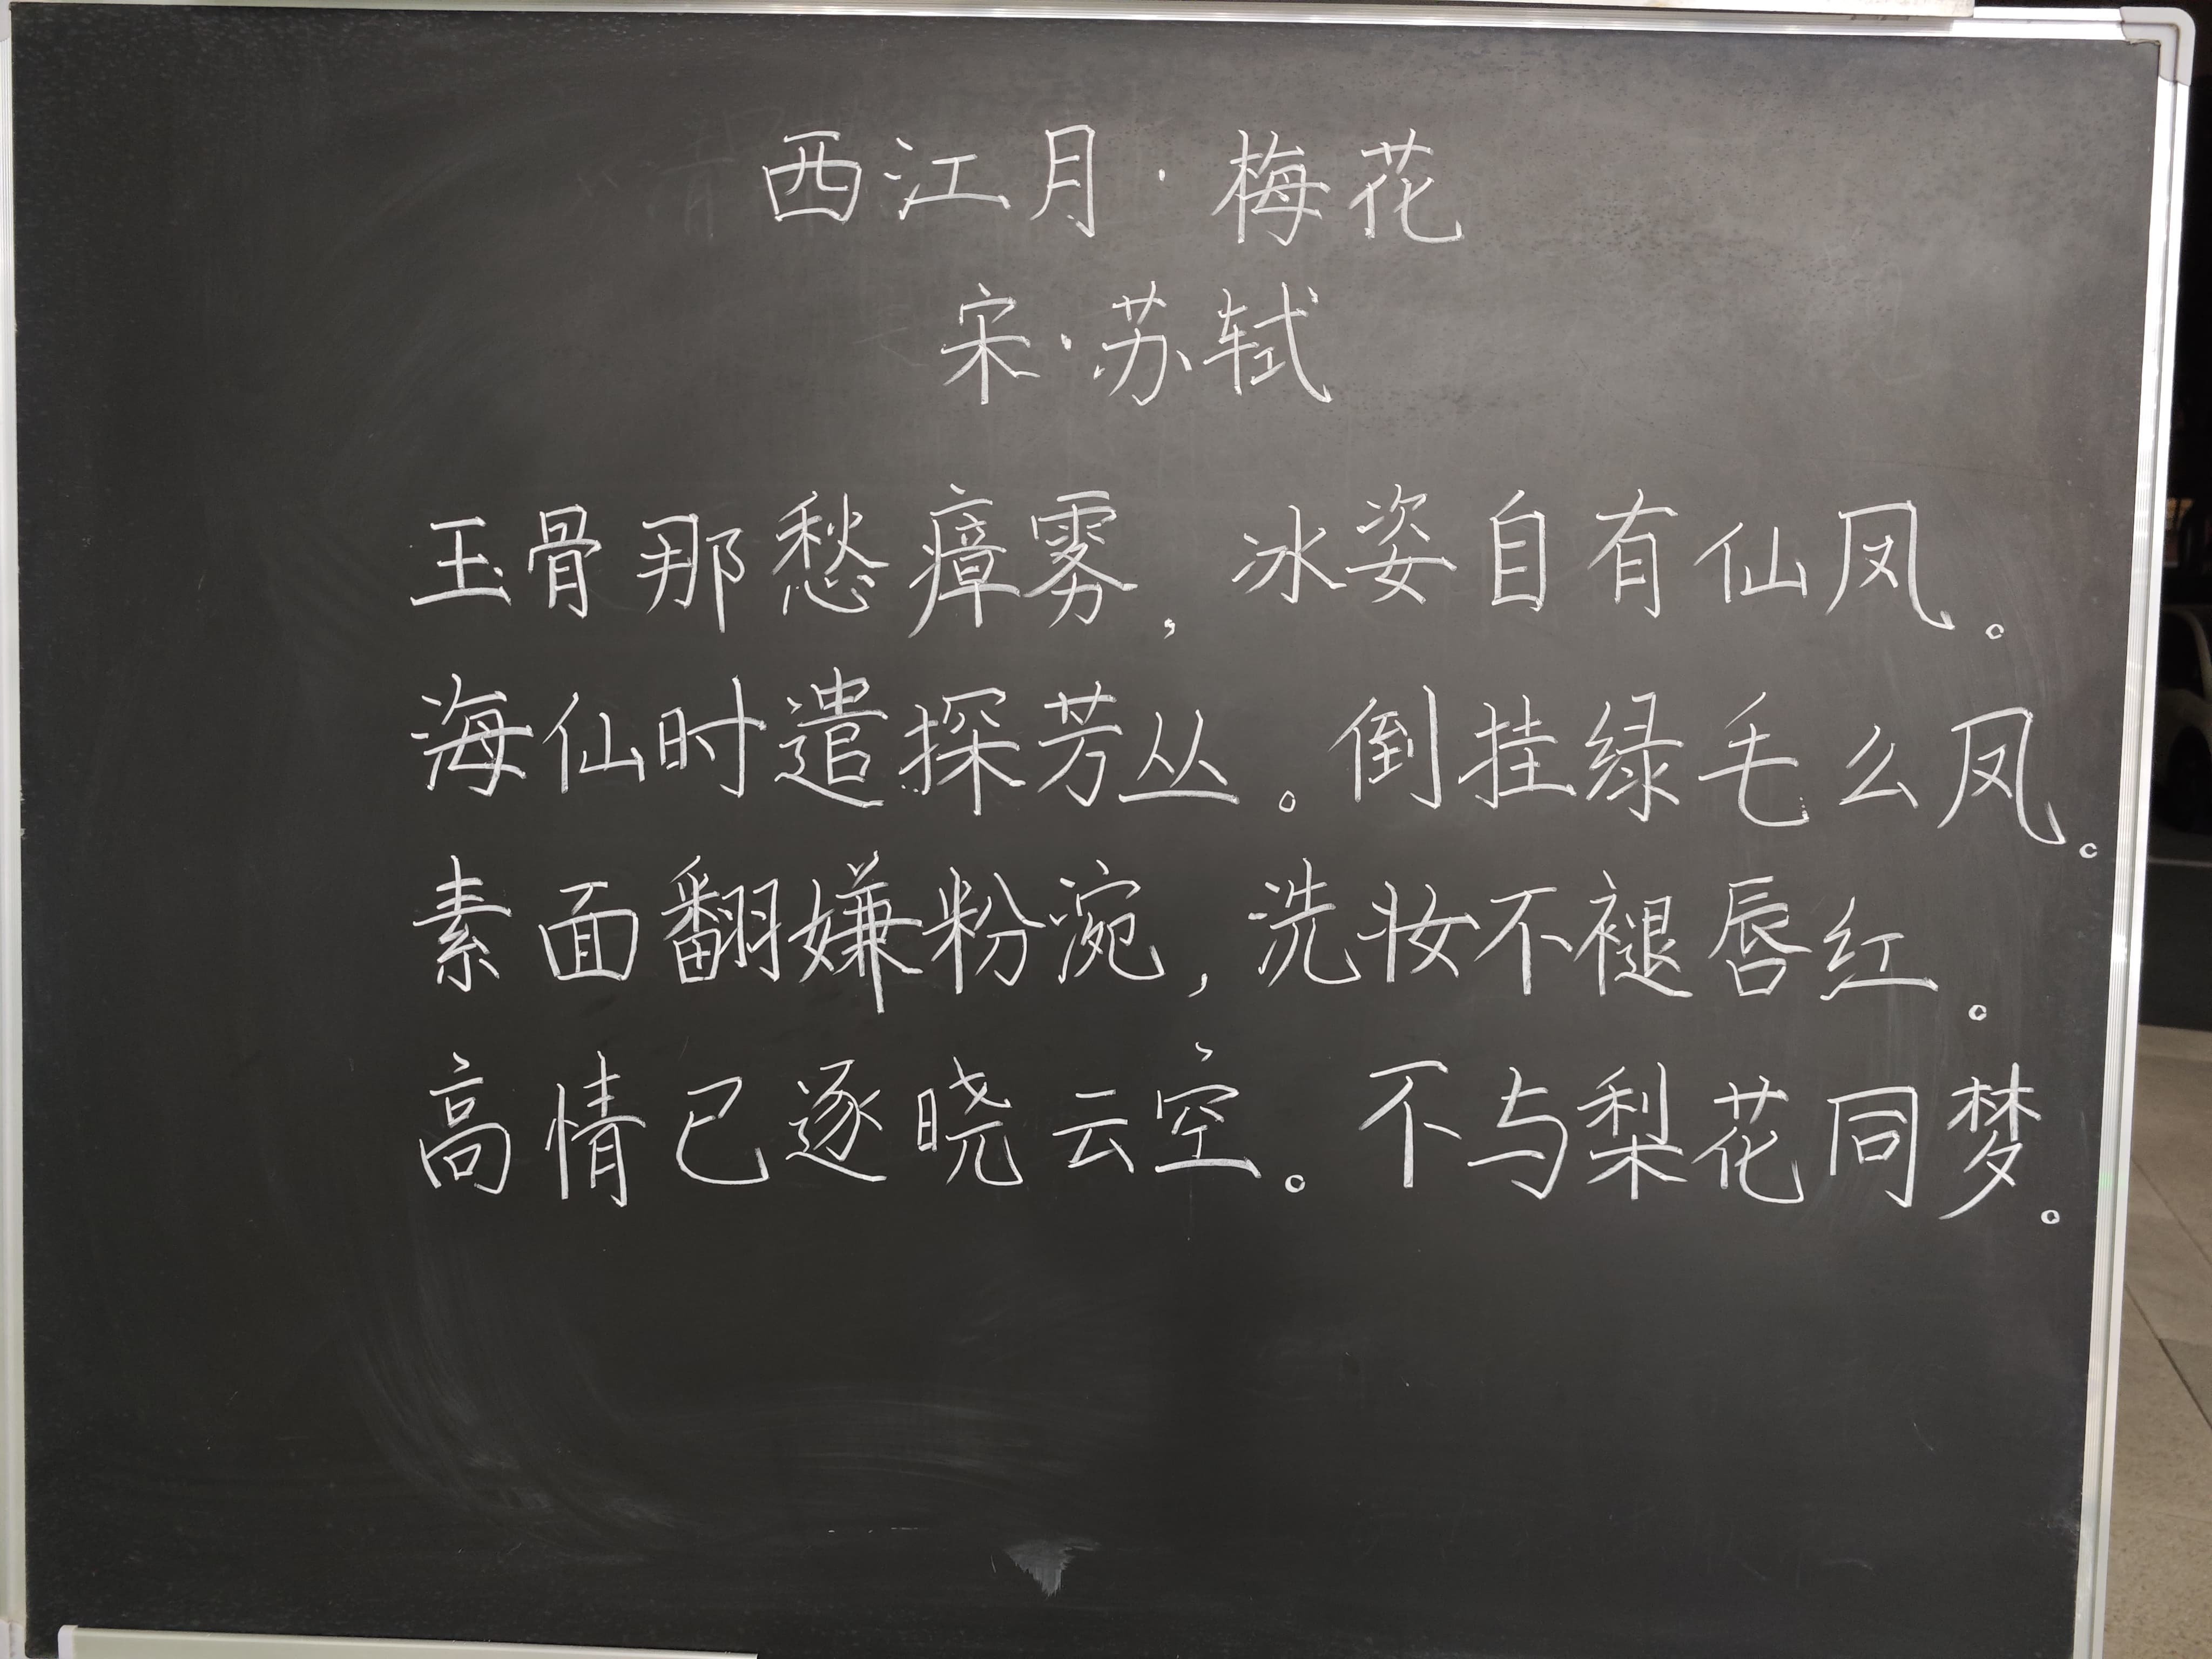 西江月·梅花
宋·苏轼
玉骨那愁瘴雾，冰姿自有仙凤。
海仙时遣探芳丛。倒挂绿毛么凤。
素面翻嫌粉涴，洗妆不褪唇红。
高情已逐晓云空。不与梨花同梦。